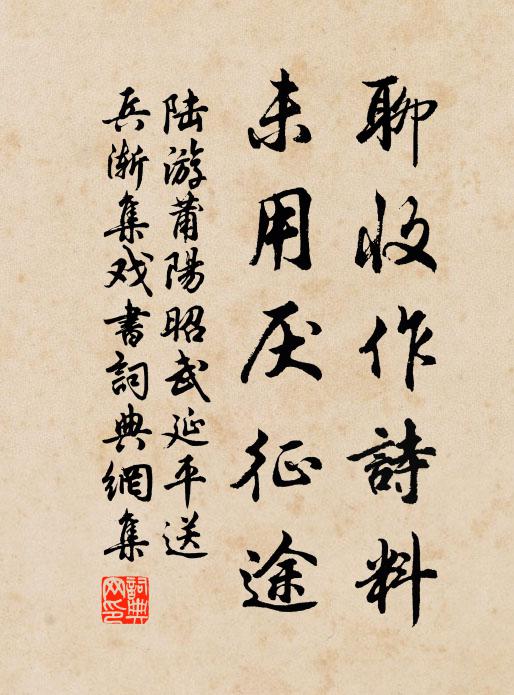 聊收作詩料
未用厌征途
陆游莆陽昭武延平送
兵渐集戏書詞典網集
詞典網印